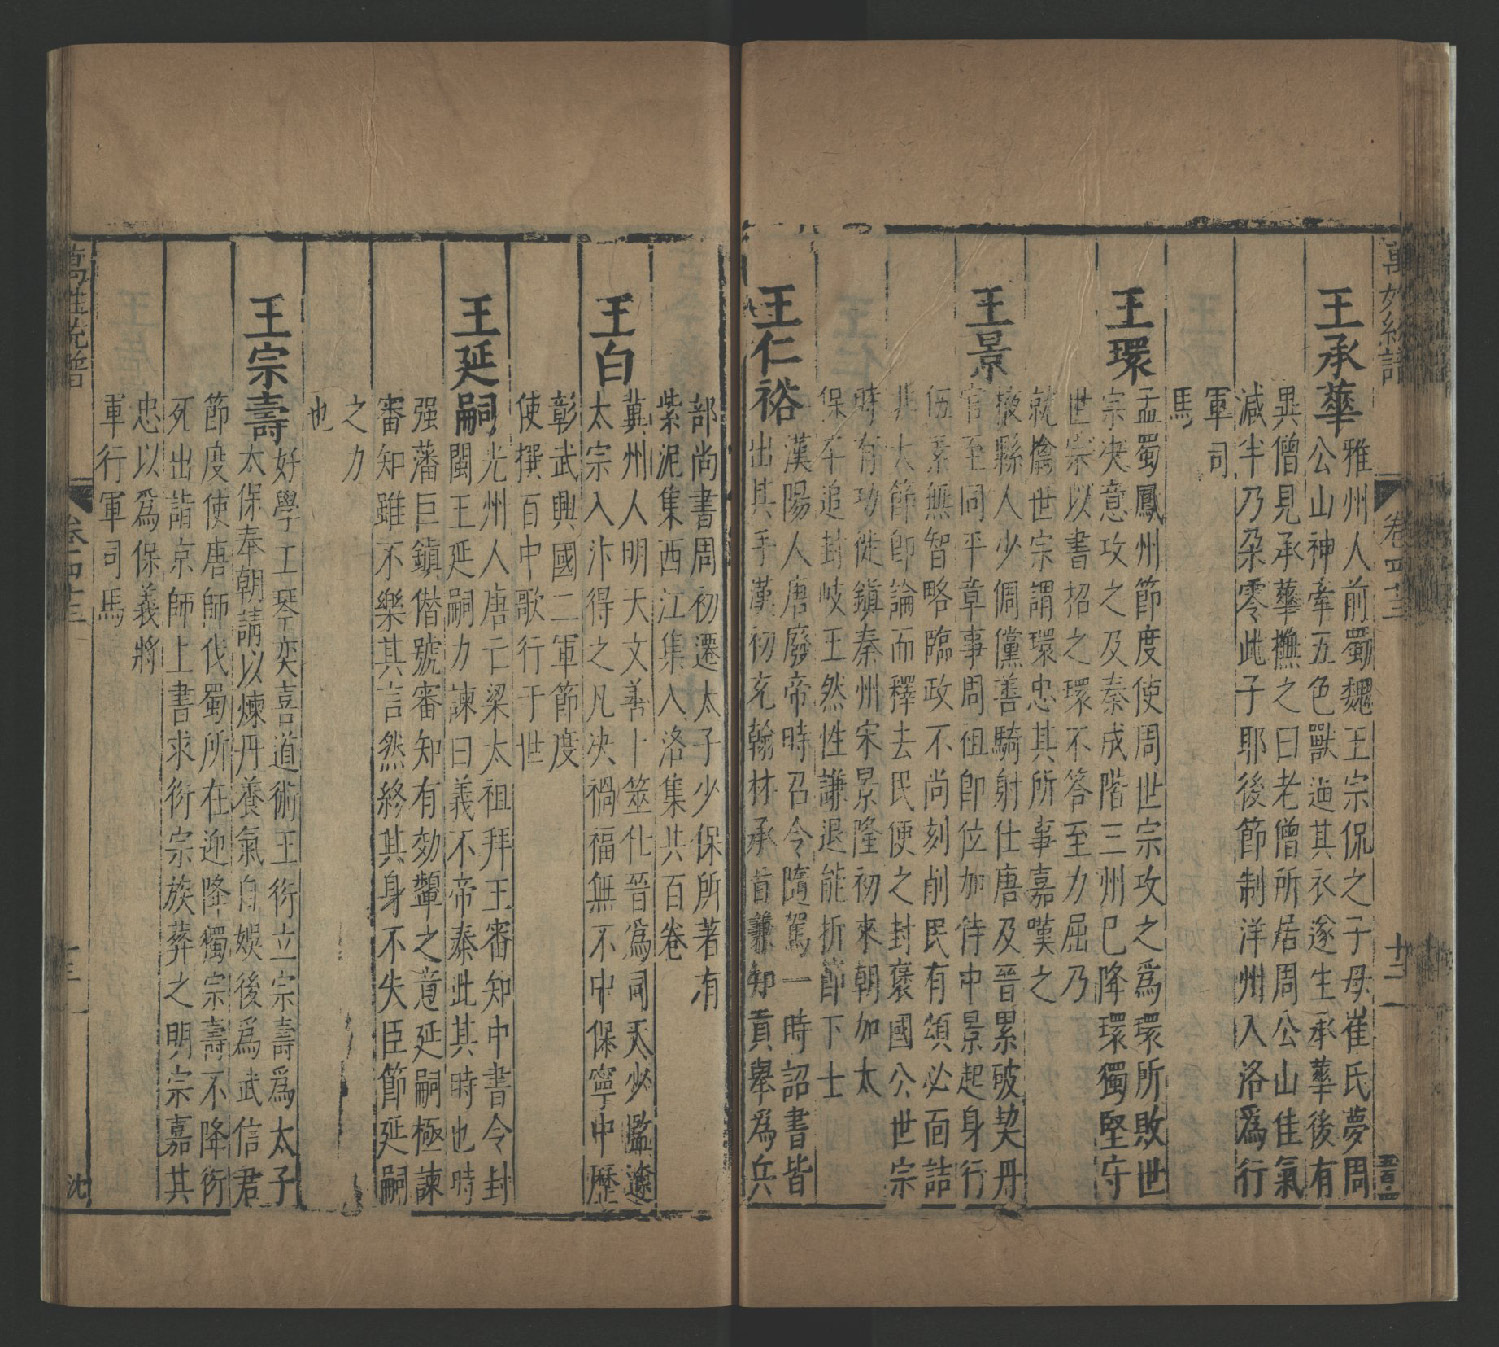 萬姓統譜
卷四十三
十二
王承葦
雅州人前蜀魏王宗侃之子母崔氏夢周
公山神牽五色獸迤其衣遂生承葦後有
異僧見承葦撫之曰老僧所居周公山佳氣
減半乃朶零此子耶後節制洋州入洛爲行
軍司
馬
王環
孟蜀鳳州節度使周世宗攻之爲環所敗世
宗决意攻之及秦成階三州已降環獨堅守
世宗以書招之環不答至力屈乃
就擒世宗謂環忠其所事嘉嘆之
王景
掖縣人少倜儻善騎射仕唐及晉累破契丹
官至同平章事周伹即位加侍中景起身行
伍素無智略臨政不尚刻削民有頌必面詰
其大節即論而釋去民便之封褒國公世宗
時有功徙鎮秦州宋景隆初來朝加太
保卒追封岐王然性謙退能折節下士
王仁裕
漢陽人唐廢帝時召令隨駕一時詔書皆
出其手漢初充翰林承㫖兼知貢舉爲兵
部尚書周初遷太子少保所著有
紫泥集西江集入洛集共百卷
王白
冀州人明天文善卜筮仕晉爲司天少監遼
太宗入汴得之凡决禍福無不中保寧中歷
彰武興國二軍節度
使撰百中歌行于世
王延嗣
光州人唐亡梁太祖拜王審知中書令封
閩王延嗣力諫曰義不帝秦此其時也時
强藩巨鎮僭號審知有効顰之意延嗣極諫
審知雖不樂其言然終其身不失臣節延嗣
之力
也
王宗壽
好學工琴奕喜道術王衍立宗壽爲太子
太保奉朝請以煉丹養氣自娛後爲武信君
節度使唐師伐蜀所在迎降獨宗壽不降衍
死出詣京師上書求衍宗族葬之明宗嘉其
忠以爲保義將
軍行軍司馬
萬姓統譜
卷四十三
十三
沈